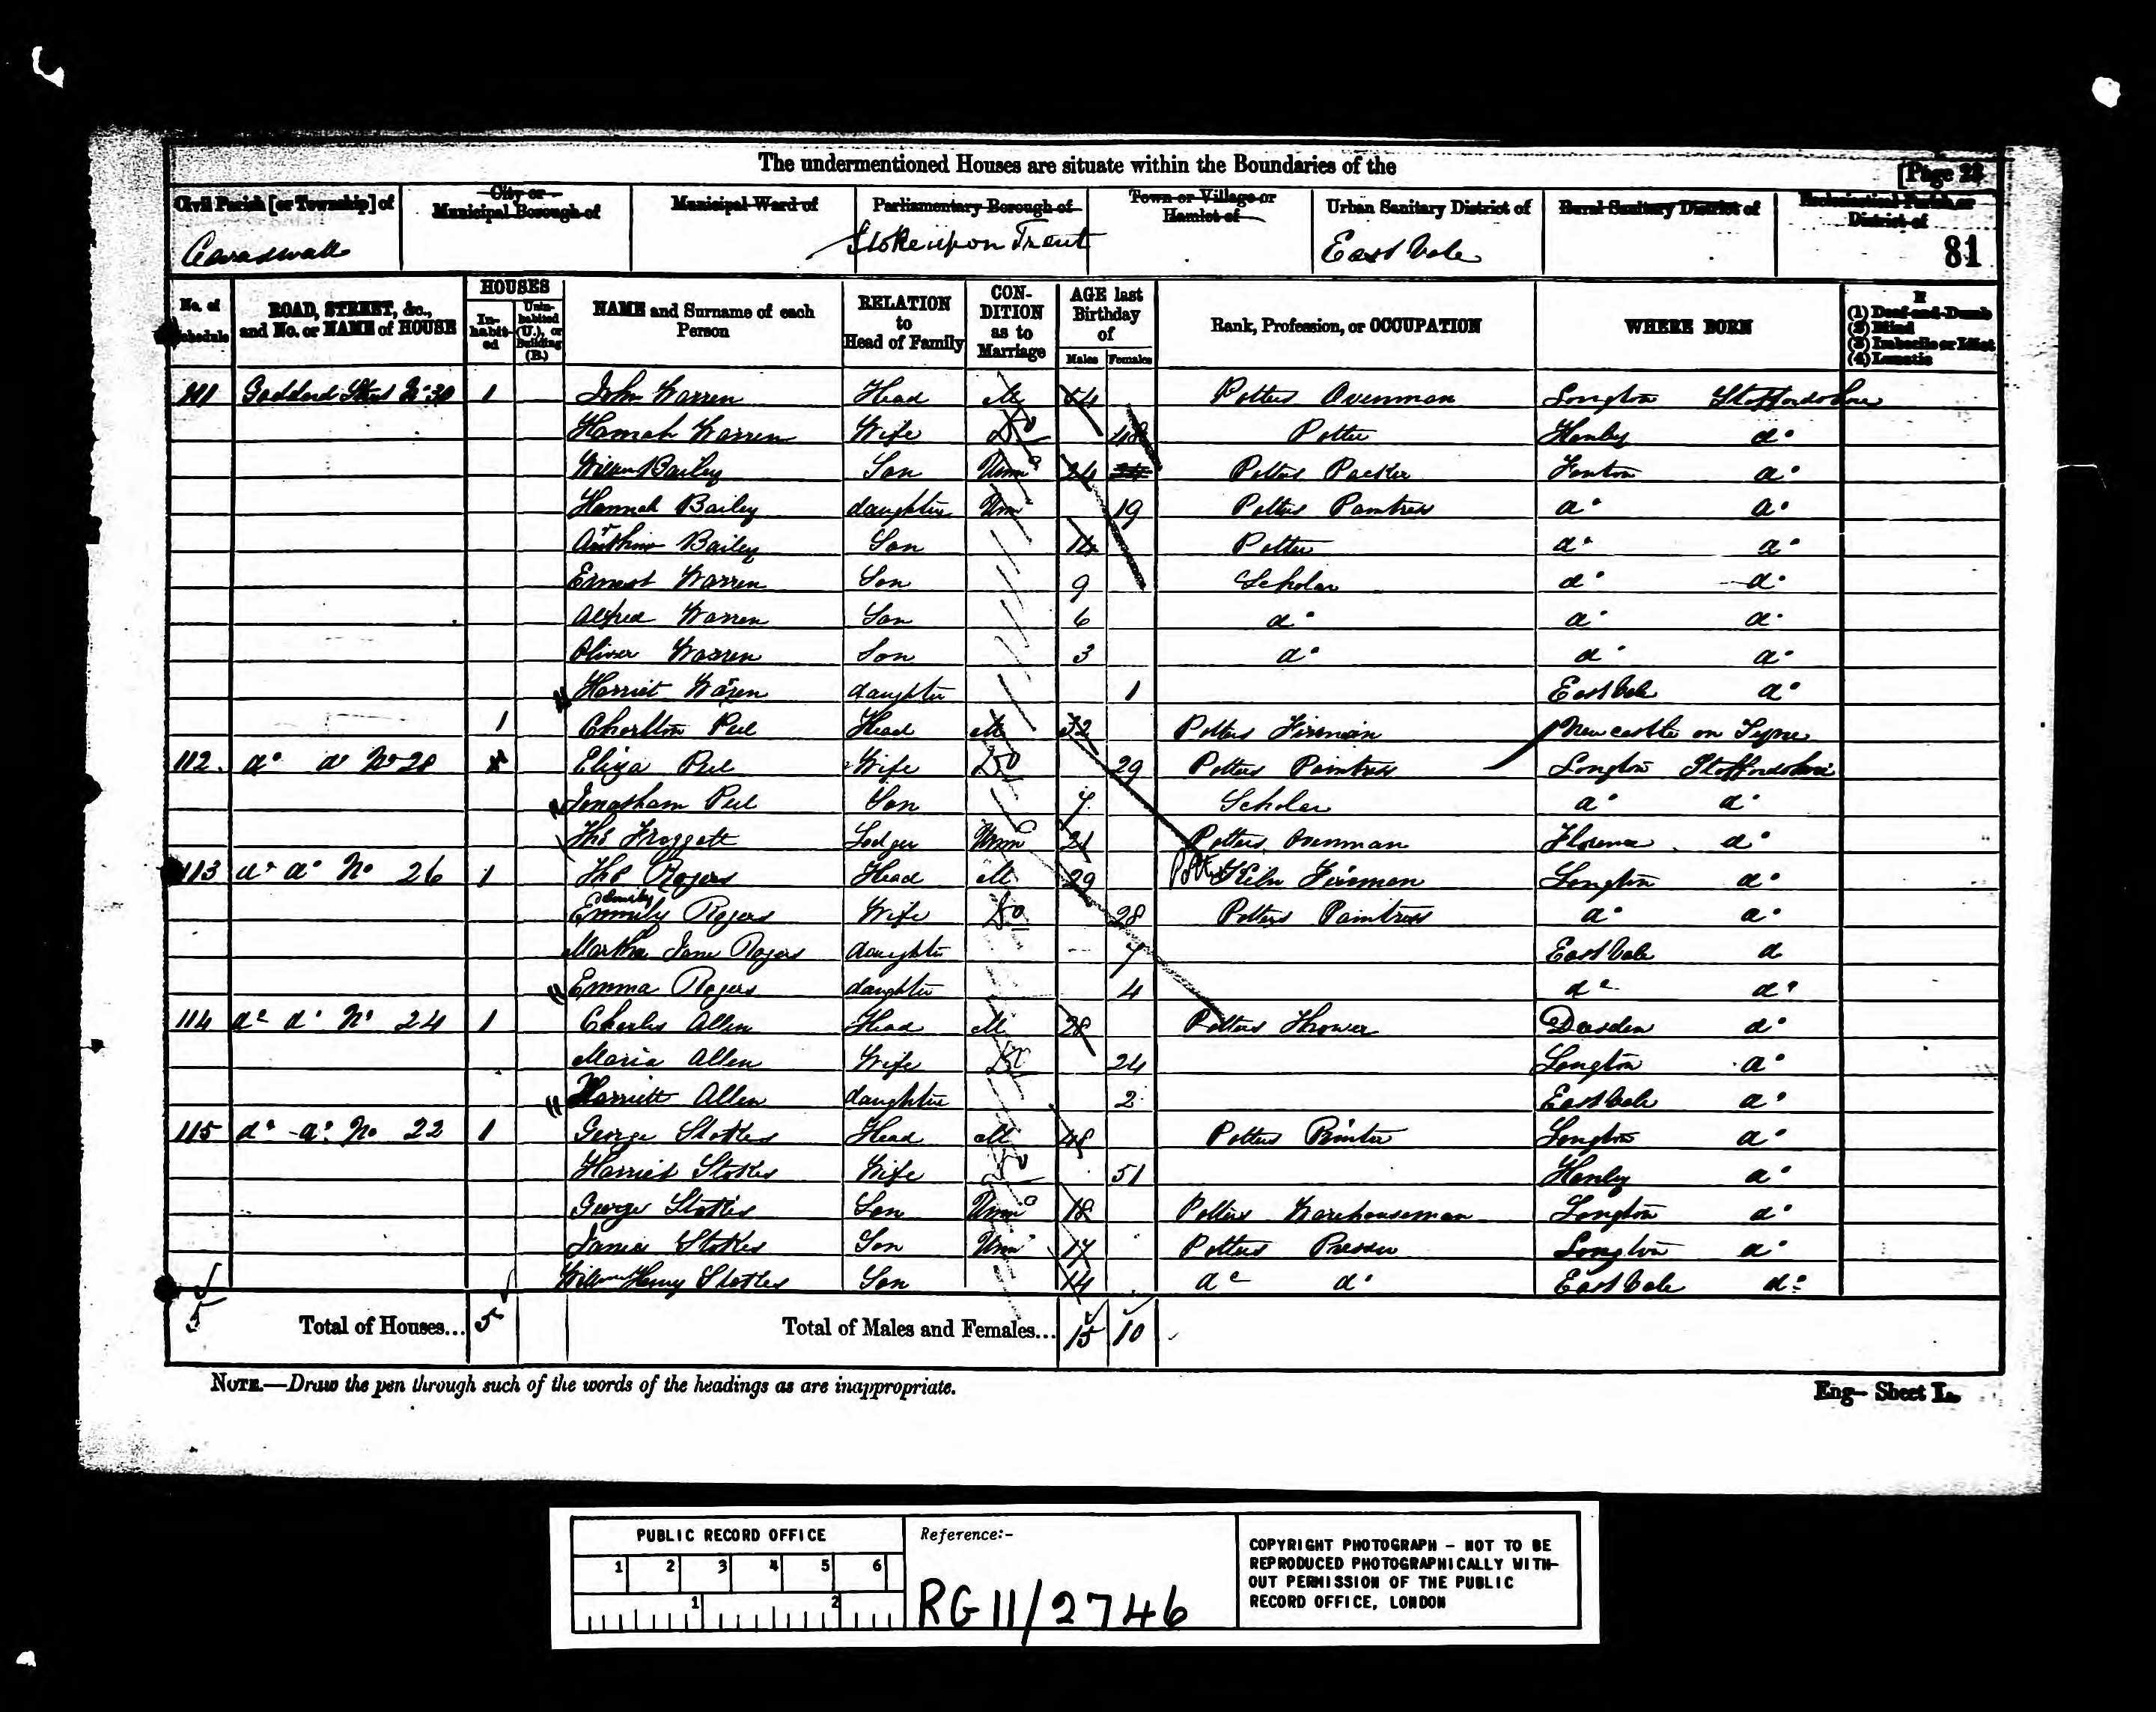 The undermentioned Houses are situate within the Boundaries of the
[Page 23
Civil Parish [or Township] of
City or Municipal Borough of
Municipal Ward of
Parliamentary Borough of
Town or Village or Hamlet of
Urban Sanitary District of
Rural Sanitary District of
Ecclesiastical Parish or District of
Caverswall
Stoke upon Trent
East Vale
81
No. of Schedule
ROAD, STREET, &c., and No. or NAME of HOUSE
HOUSES
In-habit-ed
Unin-habited (U.), or Building (B.)
NAME and Surname of each Person
RELATION to Head of Family
CON-DITION as to Marriage
AGE last Birthday of
Males
Females
Rank, Profession, or OCCUPATION
WHERE BORN
If
(1) Deaf-and-Dumb
(2) Blind
(3) Imbecile or Idiot
(4) Lunatic
111 Goddard Street No 30 1 John Warren Head M Potters Ovenman Longton Staffordshire
Hannah Warren Wife Do 48 Potter Hanley do
Willm Bailey Son Unm 24 Potters Packer Fenton do
Hannah Bailey daughter Unm 19 Potters Paintress do do
Bailey Son 14 Potter do do
Ernest Warren Son 9 Scholar do do
Alfred Warren Son 6 do do do
Oliver Warren Son 3 do do do
Harriet Waren daughter 1 East Vale do
1 Charlton Peel Head M 32 Potters Fireman Newcastle on Tyne
112 do do No 28 Eliza Peel Wife Do 29 Potters Paintress Longton Staffordshire
Jonatham Peel Son 7 Scholar do do
Thos Froggatt Lodger Unm 21 Potters Ovenman Florence do
113 do do No 26 1 Thos Rogers Head M 29 Potters Kiln Fireman Longton do
Emily
Emmily Rogers Wife Do 28 Potters Paintress do do
Martha Jane Rogers daughter 7 East Vale do
Emma Rogers daughter 4 do do
114 do do No 24 1 Charles Allen Head M 28 Potters Thrower Dresden do
Maria Allen Wife Do 24 Longton do
Harriett Allen daughter 2 East Vale do
115 do do No 22 1 George Stokes Head M 48 Potters Printer Longton do
Harriet Stokes Wife Do 51 Hanley do
George Stokes Son Unm 18 Potters Warehouseman Longton do
James Stokes Son Unm 17 Potters Presser Longton do
Willm Henry Stokes Son 14 do do East Vale do
5 Total of Houses... 5 Total of Males and Females... 15 10
NOTE.—Draw the pen through such of the words of the headings as are inappropriate.
Eng— Sheet L.
PUBLIC RECORD OFFICE
1 2 3 4 5 6
1 2
Reference:-
RG 11/2746
COPYRIGHT PHOTOGRAPH - NOT TO BE
REPRODUCED PHOTOGRAPHICALLY WITH-
OUT PERMISSION OF THE PUBLIC
RECORD OFFICE, LONDON